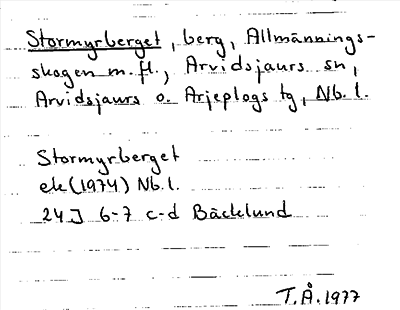 Stormyrberget, berg, Allmännings-
skogen m.fl., Arvidsjaurs sn,
Arvidsjaurs o. Arjeplogs tg, Nb.l.
Stormyrberget
ek (1974) Nb.l.
24J 6-7 c-d Bäcklund
T.Å. 1977